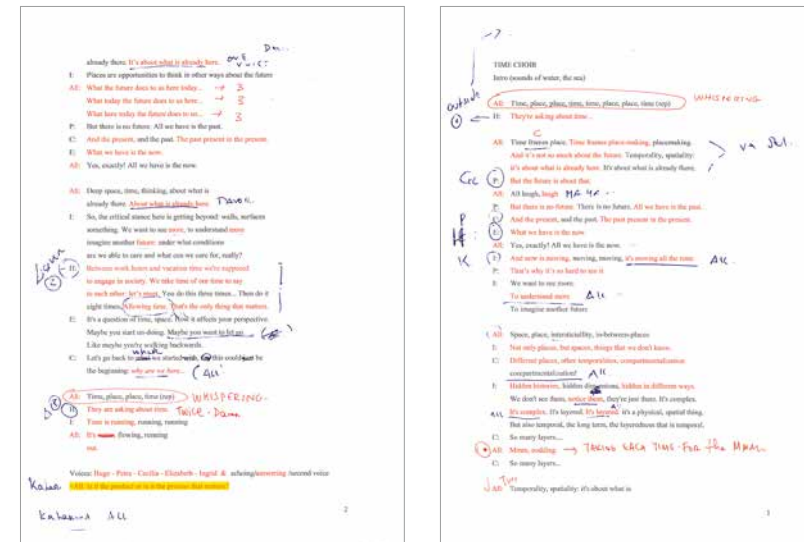 already there. It's about what is already here.
I: Places are opportunities to think in other ways about the future
All: What the future does to us here today...  → 3
What today the future does to us here...  → 3
What here today the future does to us...  → 3
P: But there is no future. All we have is the past.
C: And the present, and the past. The past present in the present.
E: What we have is the now.
All: Yes, exactly! All we have is the now.
All: Deep space, time, thinking, about what is
already there. About what is already here.
I: So, the critical stance here is getting beyond: walls, surfaces
something. We want to see more, to understand more
imagine another future: under what conditions
are we able to care and what can we care for, really?
H: Between work hours and vacation time we're supposed
to engage in society. We take time of our time to say
to each other: let's meet. You do this three times... Then do it
eight times. Allowing time. That's the only thing that matters.
E: It's a question of time, space. How it affects your perspective.
Maybe you start un-doing. Maybe you want to let go
Like maybe you're walking backwards.
which
C: Let's go back to we started with, this could be
the beginning: why are we here... (All
All: Time, place, place, time (rep) WHISPERING
H: They are asking about time.
I: Time is running, running, running
All: It's flowing, running
out.
Voices: Hugo - Petra - Cecilia - Elizabeth - Ingrid & echoing/answering /second voice
+All: Is it the product or is it the process that matters?
All
2
TIME CHOIR
Intro (sounds of water, the sea)
All: Time, place, place, time, time, place, place, time (rep) WHISPERING
outside
H: They're asking about time...
C
All: Time frames place. Time frames place-making, placemaking.
And it's not so much about the future. Temporality, spatiality:
it's about what is already here. It's about what is already there.
P: But the future is about that.
All: All laugh, laugh
P: But there is no future. There is no future. All we have is the past.
C: And the present, and the past. The past present in the present.
E: What we have is the now
All: Yes, exactly! All we have is the now.
K
And now is moving, moving, moving, it's moving all the time. ALL
P: That's why it's so hard to see it
E: We want to see more.
To understand more ALL
To imagine another future
All: Space, place, intersticiallity, in-between-places
I: Not only places, but spaces, things that we don't know.
C: Different places, other temporalities, compartmentalization
compartmentalization! All
I: Hidden histories, hidden dimensions, hidden in different ways.
We don't see them, notice them, they're just there. It's complex.
All It's complex. It's layered. It's layered, it's a physical, spatial thing.
But also temporal, the long term, the layeredness that is temporal.
C: So many layers...
All: Mmm, nodding. → TAKING EACH TIME FOR the Mmm
C: So many layers...
All: Temporality, spatiality: it's about what is
1